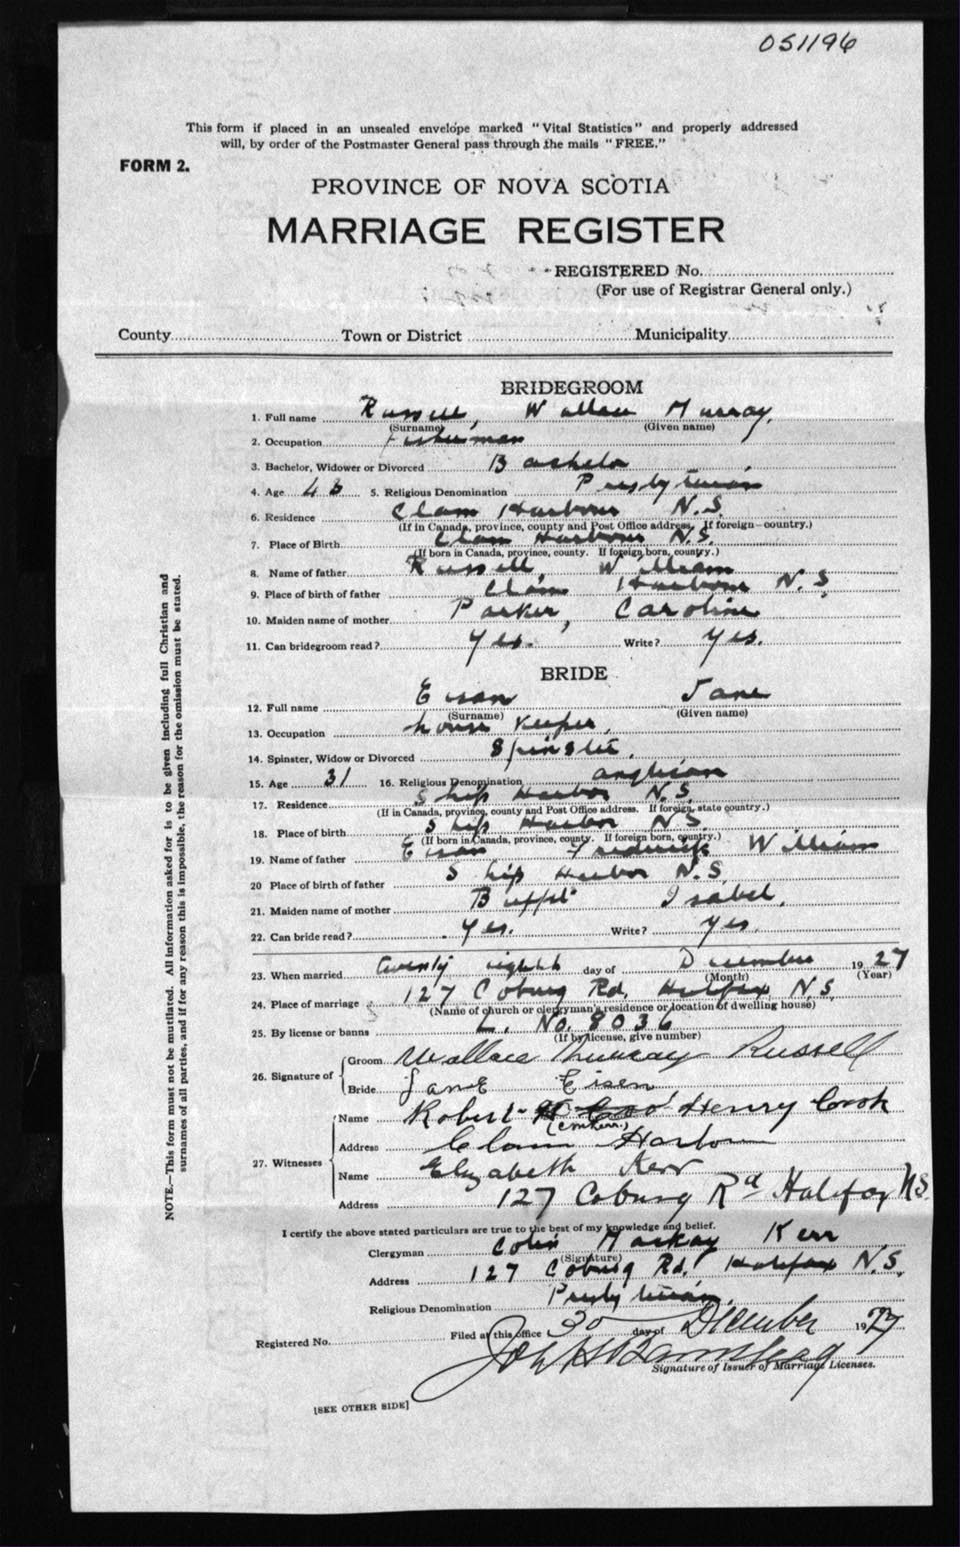 051196
This form if placed in an unsealed envelope marked "Vital Statistics" and properly addressed
will, by order of the Postmaster General pass through the mails "FREE."
FORM 2.
PROVINCE OF NOVA SCOTIA
MARRIAGE REGISTER
REGISTERED No.
(For use of Registrar General only.)
County Town or District Municipality
BRIDEGROOM
1. Full name Russell, Wallace Murray,
(Surname) (Given name)
2. Occupation Fisherman
3. Bachelor, Widower or Divorced Bachelor
4. Age 5. Religious Denomination Presbyterian
6. Residence Clam Harbour N.S.
(If in Canada, province, county and Post Office address. If foreign—country.)
7. Place of Birth Clam Harbour N.S.
(If born in Canada, province, county. If foreign born, country.)
8. Name of father Russell William
9. Place of birth of father Clam Harbour N.S.
10. Maiden name of mother Parker, Caroline
11. Can bridegroom read? Yes. Write? Yes.
BRIDE
12. Full name Eisan Jane
(Surname) (Given name)
13. Occupation house Keeper,
14. Spinster, Widow or Divorced Spinster.
15. Age 31 16. Religious Denomination anglican
17. Residence Ship Harbor N.S.
(If in Canada, province, county and Post Office address. If foreign, state country.)
18. Place of birth Ship Harbor N.S.
(If born in Canada, province, county. If foreign born, country.)
19. Name of father Eisan Frederick William
20 Place of birth of father Ship Harbor N.S.
21. Maiden name of mother Isabel.
22. Can bride read? Yes. Write? Yes.
23. When married twenty eighth day of December 1927
(Month) (Year)
24. Place of marriage 127 Coburg Rd, Halifax N.S.
(Name of church or clergyman's residence or location of dwelling house)
25. By license or banns L. No. 8036
(If by license, give number)
26. Signature of Groom Wallace Murray Russell
Bride Jane Eisen
27. Witnesses Name Robert Henry Cook
Address Clam Harbour
Name Elizabeth Kerr
Address 127 Coburg Rd Halifax N.S.
I certify the above stated particulars are true to the best of my knowledge and belief.
Clergyman Colin Mackay Kerr
(Signature)
Address 127 Coburg Rd. Halifax N.S.
Religious Denomination Presbyterian.
Registered No. Filed at this office 30 day of December 1927
Signature of Issuer of Marriage Licenses.
[SEE OTHER SIDE]
NOTE.—This form must not be mutilated. All information asked for is to be given including full Christian and
surnames of all parties, and if for any reason this is impossible, the reason for the omission must be stated.